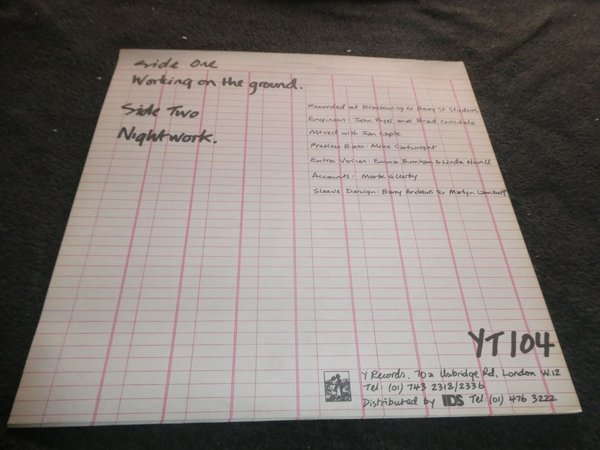 Side One
Working on the ground.
Side Two
Nightwork.
Recorded at Blackwing & Berry St Studios
Engineer: John Fryer and Brad
Mixed with Ian Caple
Fretless Bass: Mike Cartwright
Extra Voices: Emma Burnham & Linda Nevill
Accounts: Mark
Sleeve Design: Barry Andrews & Martyn Lambert
YT104
Y Records, 70a Uxbridge Rd, London W.12
Tel: (01) 743 2318/2336
Distributed by IDS Tel: (01) 476 3222